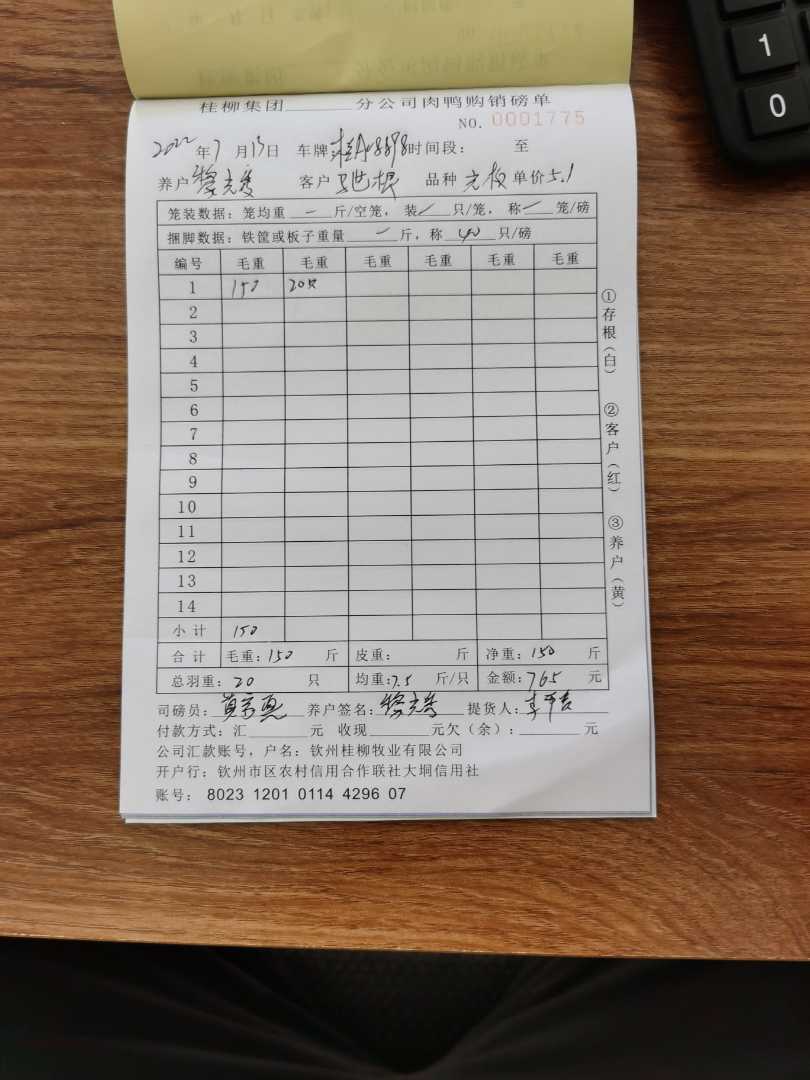 桂柳集团______分公司肉鸭购销磅单
NO. 0001775
2022年7月13日 车牌 桂A48898 时间段： 至
养户 客户 品种 单价5.1
笼装数据：笼均重 — 斤/空笼，装 / 只/笼，称 — 笼/磅
捆脚数据：铁筐或板子重量 — 斤，称 40 只/磅
编号 毛重 毛重 毛重 毛重 毛重 毛重
1 150 20只
2
3
4
5
6
7
8
9
10
11
12
13
14
小计 150
合计 毛重：150 斤 皮重： 斤 净重：150 斤
总羽重：20 只 均重：7.5 斤/只 金额：765 元
司磅员： 养户签名： 提货人：
付款方式：汇______元 收现______元欠（余）：______元
公司汇款账号，户名：钦州桂柳牧业有限公司
开户行：钦州市区农村信用合作联社大垌信用社
账号： 8023 1201 0114 4296 07
①存根（白）
②客户（红）
③养户（黄）
1
0